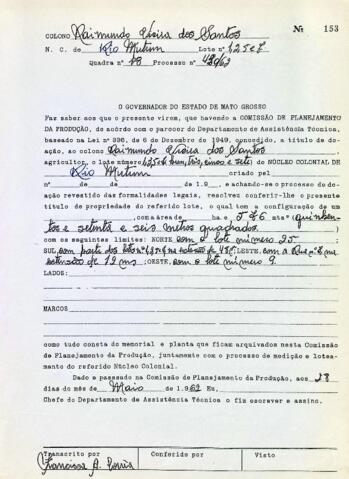 Nº 153
COLONO Raimundo Vieira dos Santos
N. C. de Rio Mutum Lote nº 1,25 e 7
Quadra nº 18 Processo nº
O GOVERNADOR DO ESTADO DE MATO GROSSO
Faz saber aos que o presente virem, que havendo a COMISSÃO DE PLANEJAMENTO
DA PRODUÇÃO, de acôrdo com o parecer do Departamento de Assistência Técnica,
baseado na Lei nº 336, de 6 de Dezembro de 1949, concedido, a título de doa-
ção, ao colono Raimundo Vieira dos Santos
agricultor, o lote número do NÚCLEO COLONIAL DE
Rio Mutum criado pel
nº de de de 1.9 , e achando-se o processo de do-
ação revestido das formalidades legais, resolveu conferir-lhe o presente
título de propriedade do referido lote, o qual tem a configuração de um
, com a área de ha. e 576 mts² (quinhen-
tos e setenta e seis metros quadrados.
com os seguintes limites: NORTE com o lote número 25
SUL com parte dos lotes LESTE, com a Rua nº 8 na
extensão de 12 ms; OESTE, com o lote número 9.
LADOS:
MARCOS
como tudo consta do memorial e planta que ficam arquivados nesta Comissão
de Planejamento da Produção, juntamente com o processo de medição e lotea-
mento do referido Núcleo Colonial.
Dado e passado na Comissão de Planejamento da Produção, aos 28
dias do mês de Maio de 1.962 Eu,
Chefe do Departamento de Assistência Técnica o fiz escrever e assino.
Transcrito por Conferido por Visto
Francisca A.